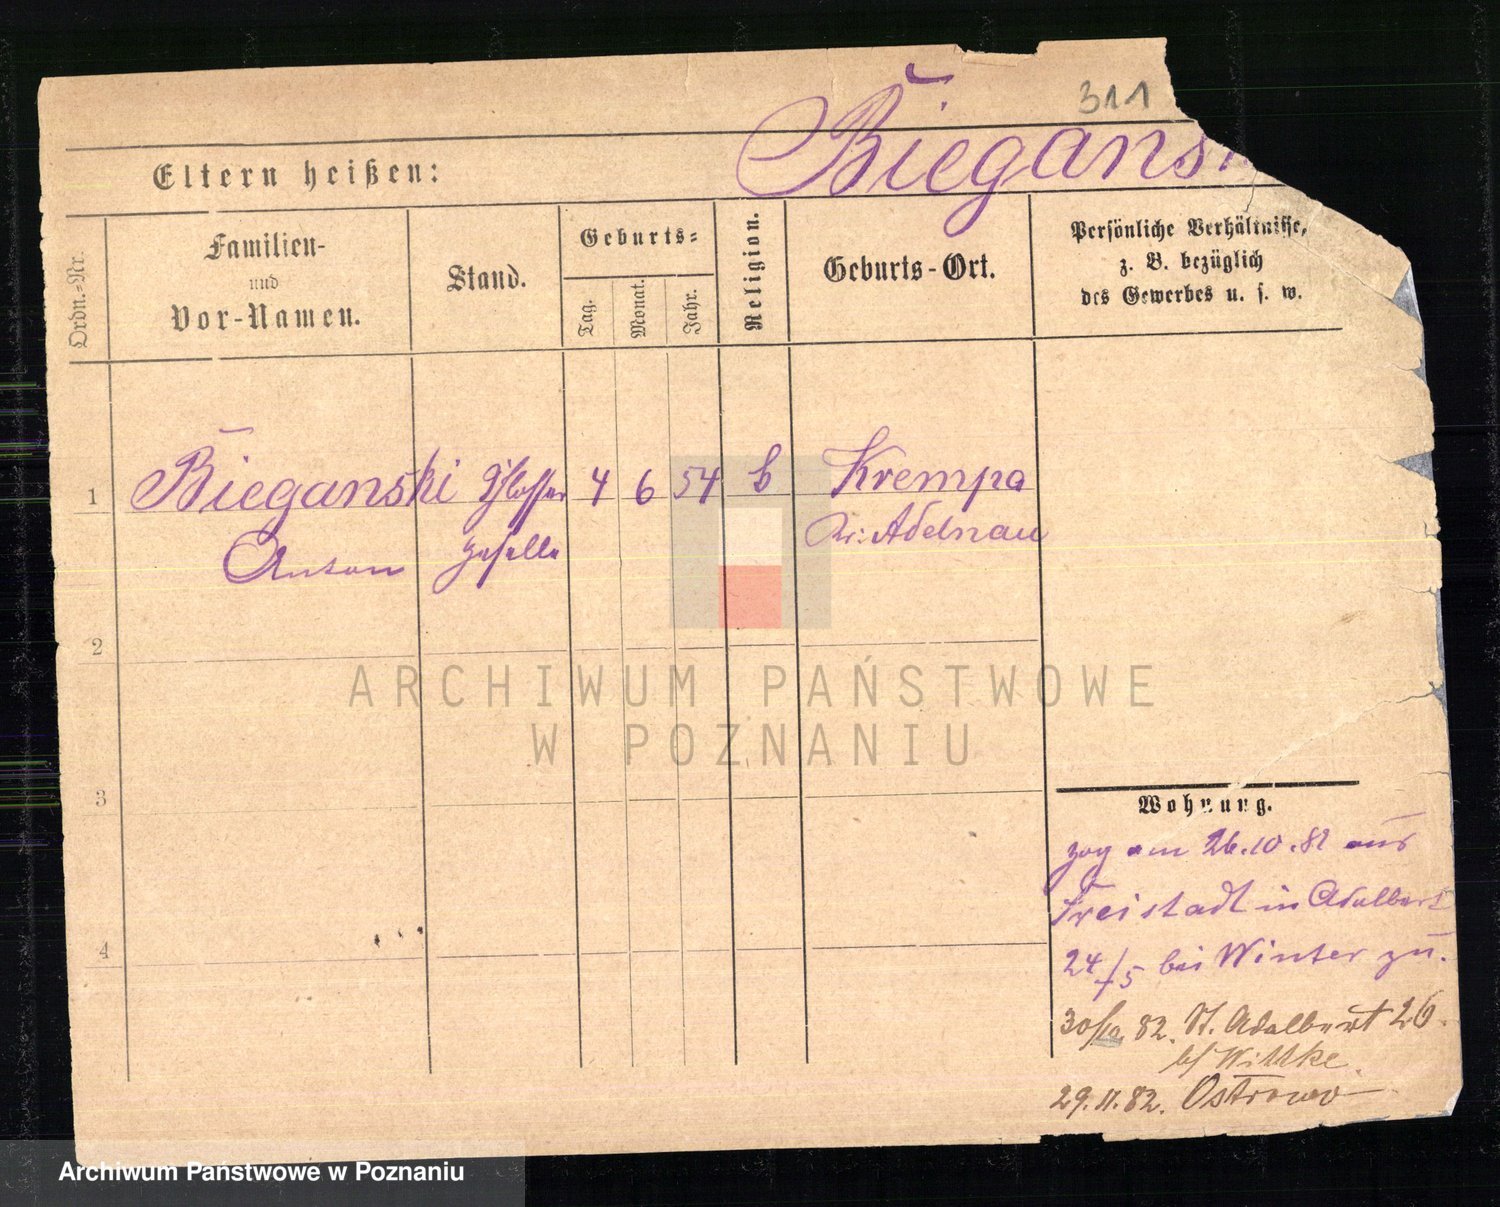 311
Bieganski
Eltern heißen:
Ordn.-Nr.
Familien-
und
Vor-Namen.
Stand.
Geburts-
Tag.
Monat.
Jahr.
Religion.
Geburts-Ort.
Persönliche Verhältnisse,
z. B. bezüglich
des Gewerbes u. s. w.
1 Bieganski Schlosser 4 6 54 k Krempa
Anton geselle Kr: Adelnau
2
3
4
Wohnung.
zog am 26.10.82 aus
Freistadt in Adalbert
24/5 bei Winter zu.
30/10 82. St. Adalbert 26.
bei Wittke.
29.11.82. Ostrowo
ARCHIWUM PAŃSTWOWE
W POZNANIU
Archiwum Państwowe w Poznaniu